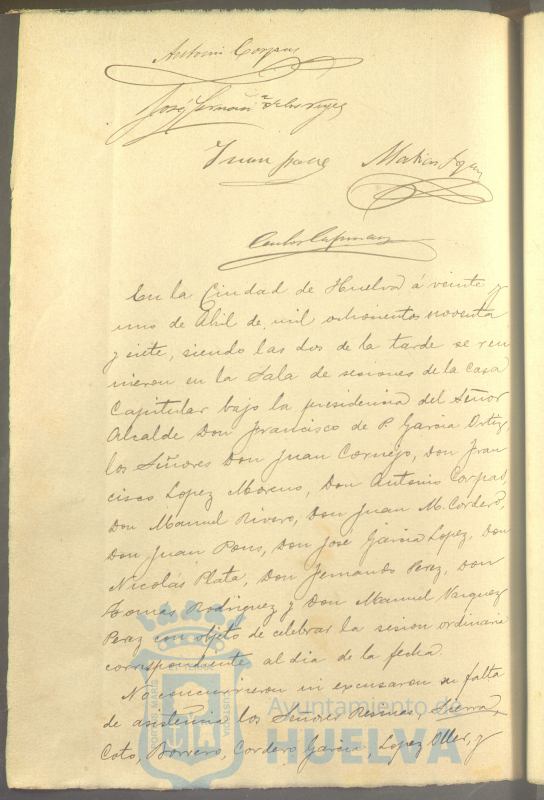 Antonio Corpas
José Fernan^z de los Reyes
Juan Pons Matias
Carlos
En la Ciudad de Huelva á veinte y
uno de Abril de mil ochocientos noventa
y siete, siendo las dos de la tarde se reu
nieron en la Sala de sesiones de la casa
Capitular bajo la presidencia del Señor
Alcalde Don Francisco de P. Garcia Ortiz,
los Señores Don Juan Cornejo, Don Fran
cisco Lopez Moreno, Don Antonio Corpas,
Don Manuel Rivero, Don Juan M. Cordero,
Don Juan Pons, Don José Garcia Lopez, Don
Nicolás Plata, Don Fernando Perez, Don
Tomas Rodriguez y Don Manuel Vazquez
Perez con objeto de celebrar la sesion ordinaria
correspondiente al dia de la fecha.
No concurrieron ni excusaron su falta
de asistencia los Señores Resinas, Sierra,
Coto, Borrero, Cordero Garcia, Lopez Oller, y
Ayuntamiento de
HUELVA